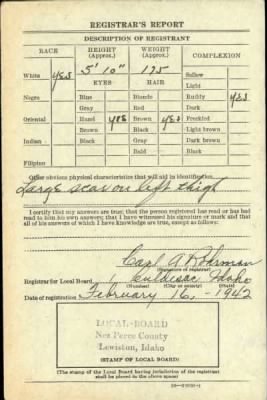 REGISTRAR'S REPORT
DESCRIPTION OF REGISTRANT
RACE HEIGHT (Approx.) WEIGHT (Approx.) COMPLEXION
White yes 5' 10" 175 Sallow
EYES HAIR Light
Negro Blue Blonde Ruddy yes
Gray Red Dark
Oriental Hazel yes Brown yes Freckled
Brown Black Light brown
Indian Black Gray Dark brown
Bald Black
Filipino
Other obvious physical characteristics that will aid in identification
Large scar on left thigh
I certify that my answers are true; that the person registered has read or has had
read to him his own answers; that I have witnessed his signature or mark and that
all of his answers of which I have knowledge are true, except as follows:
Carl A.
(Signature of registrar)
Registrar for Local Board 1 Culdesac Idaho
(Number) (City or county) (State)
Date of registration February 16, - 1942
LOCAL BOARD
Nez Perce County
Lewiston, Idaho
(STAMP OF LOCAL BOARD)
(The stamp of the Local Board having jurisdiction of the registrant
shall be placed in the above space)